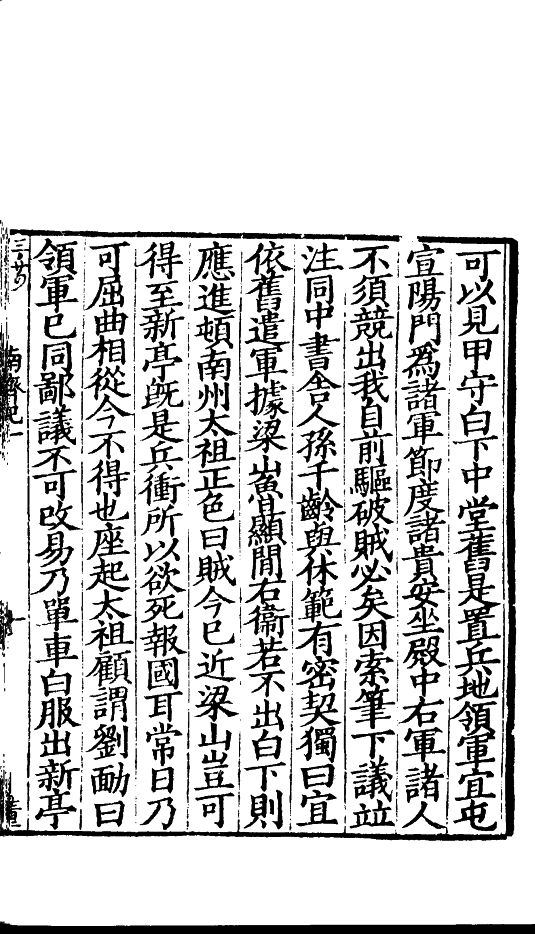 可以見甲守白下中堂舊是置兵地領軍宜屯
宣陽門爲諸軍節度諸貴安坐殿中右軍諸人
不須競出我自前驅破賊必矣因索筆下議竝
注同中書舍人孫千齡與休範有密契獨曰宜
依舊遣軍據梁山魯顯間右衞若不出白下則
應進頓南州太祖正色曰賊今已近梁山豈可
得至新亭旣是兵衝所以欲死報國耳常日乃
可屈曲相從今不得也座起太祖顧謂劉勔曰
領軍已同鄙議不可改易乃單車白服出新亭
南齊紀一